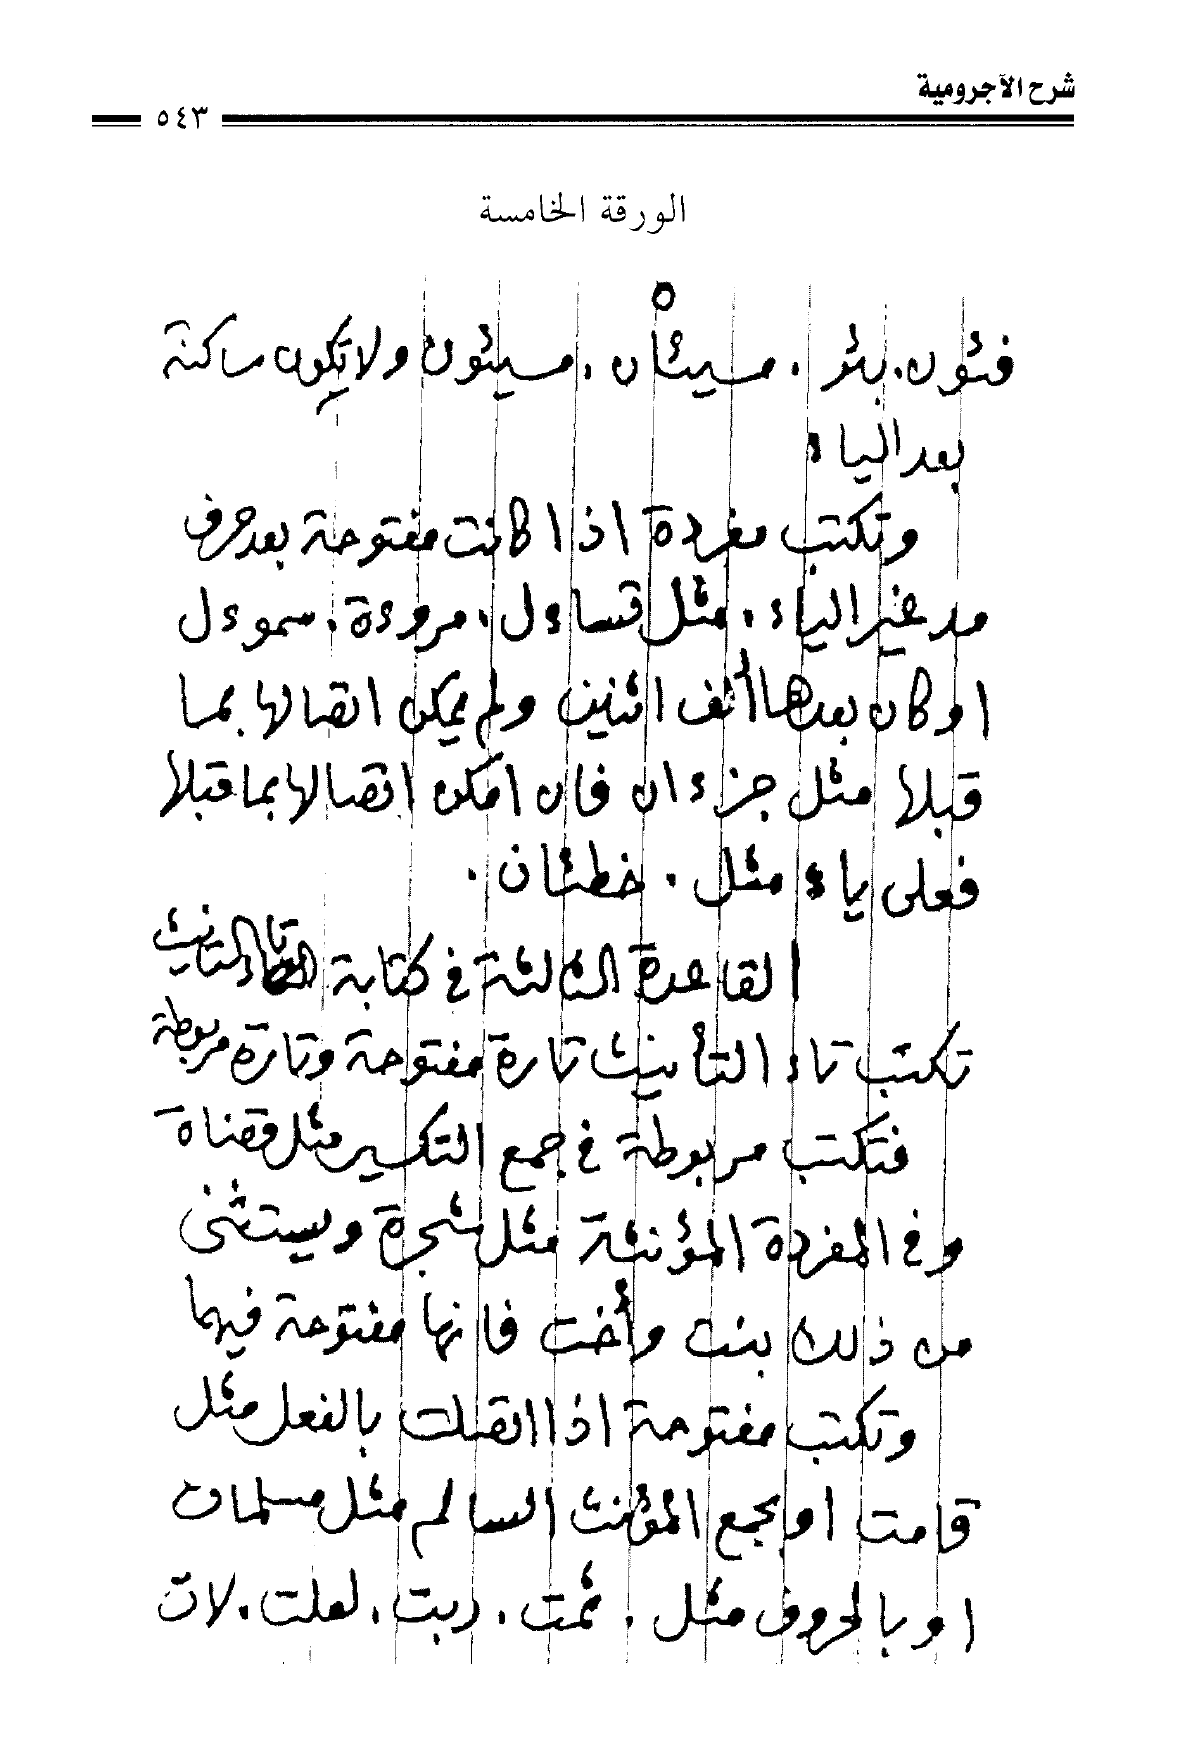 شرح الآجرومية
٥٤٣
الورقة الخامسة
٥
فئون. بئر . مسيئان . مسيئون ولا تكون ساكنة
بعد الياء
وتكتب مفردة اذا كانت مفتوحة بعد حرف
مد غير الياء . مثل تساءل . مروءة . سموءل
او كان بعدها ألف اثنين ولم يمكن اتصالها بما
قبلها مثل جزءان فان امكن اتصالها بما قبلها
فعلى ياء مثل . خطئان .
القاعدة الثالثة في كتابة تاء التأنيث
تكتب تاء التأنيث تارة مفتوحة وتارة مربوطة
فتكتب مربوطة في جمع التكسير مثل قضاة
وفي المفردة المؤنثة مثل شجرة ويستثنى
من ذلك بنت وأخت فانها مفتوحة فيهما
وتكتب مفتوحة اذا اتصلت بالفعل مثل
قامت او بجمع المؤنث السالم مثل مسلمات
او بالحروف مثل . ثمت . ربت . لعلت . لات